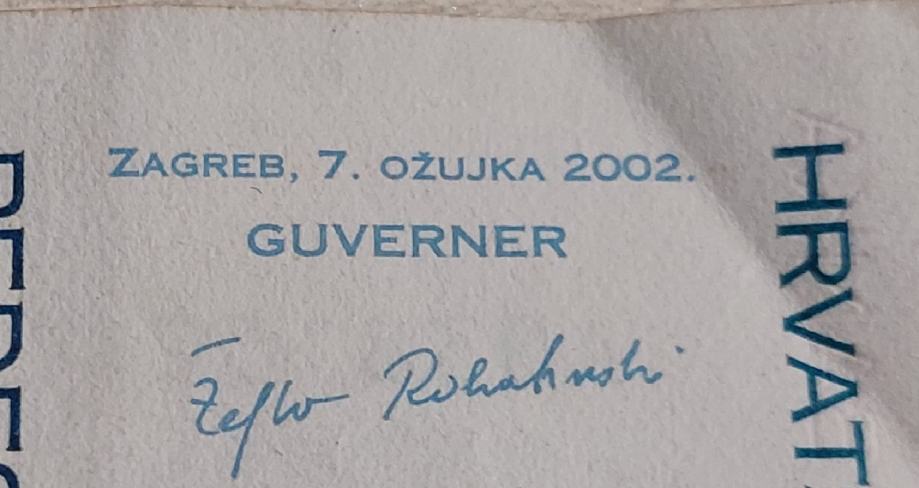 ZAGREB, 7. OŽUJKA 2002.
GUVERNER
Željko Rohatinski
HRVAT